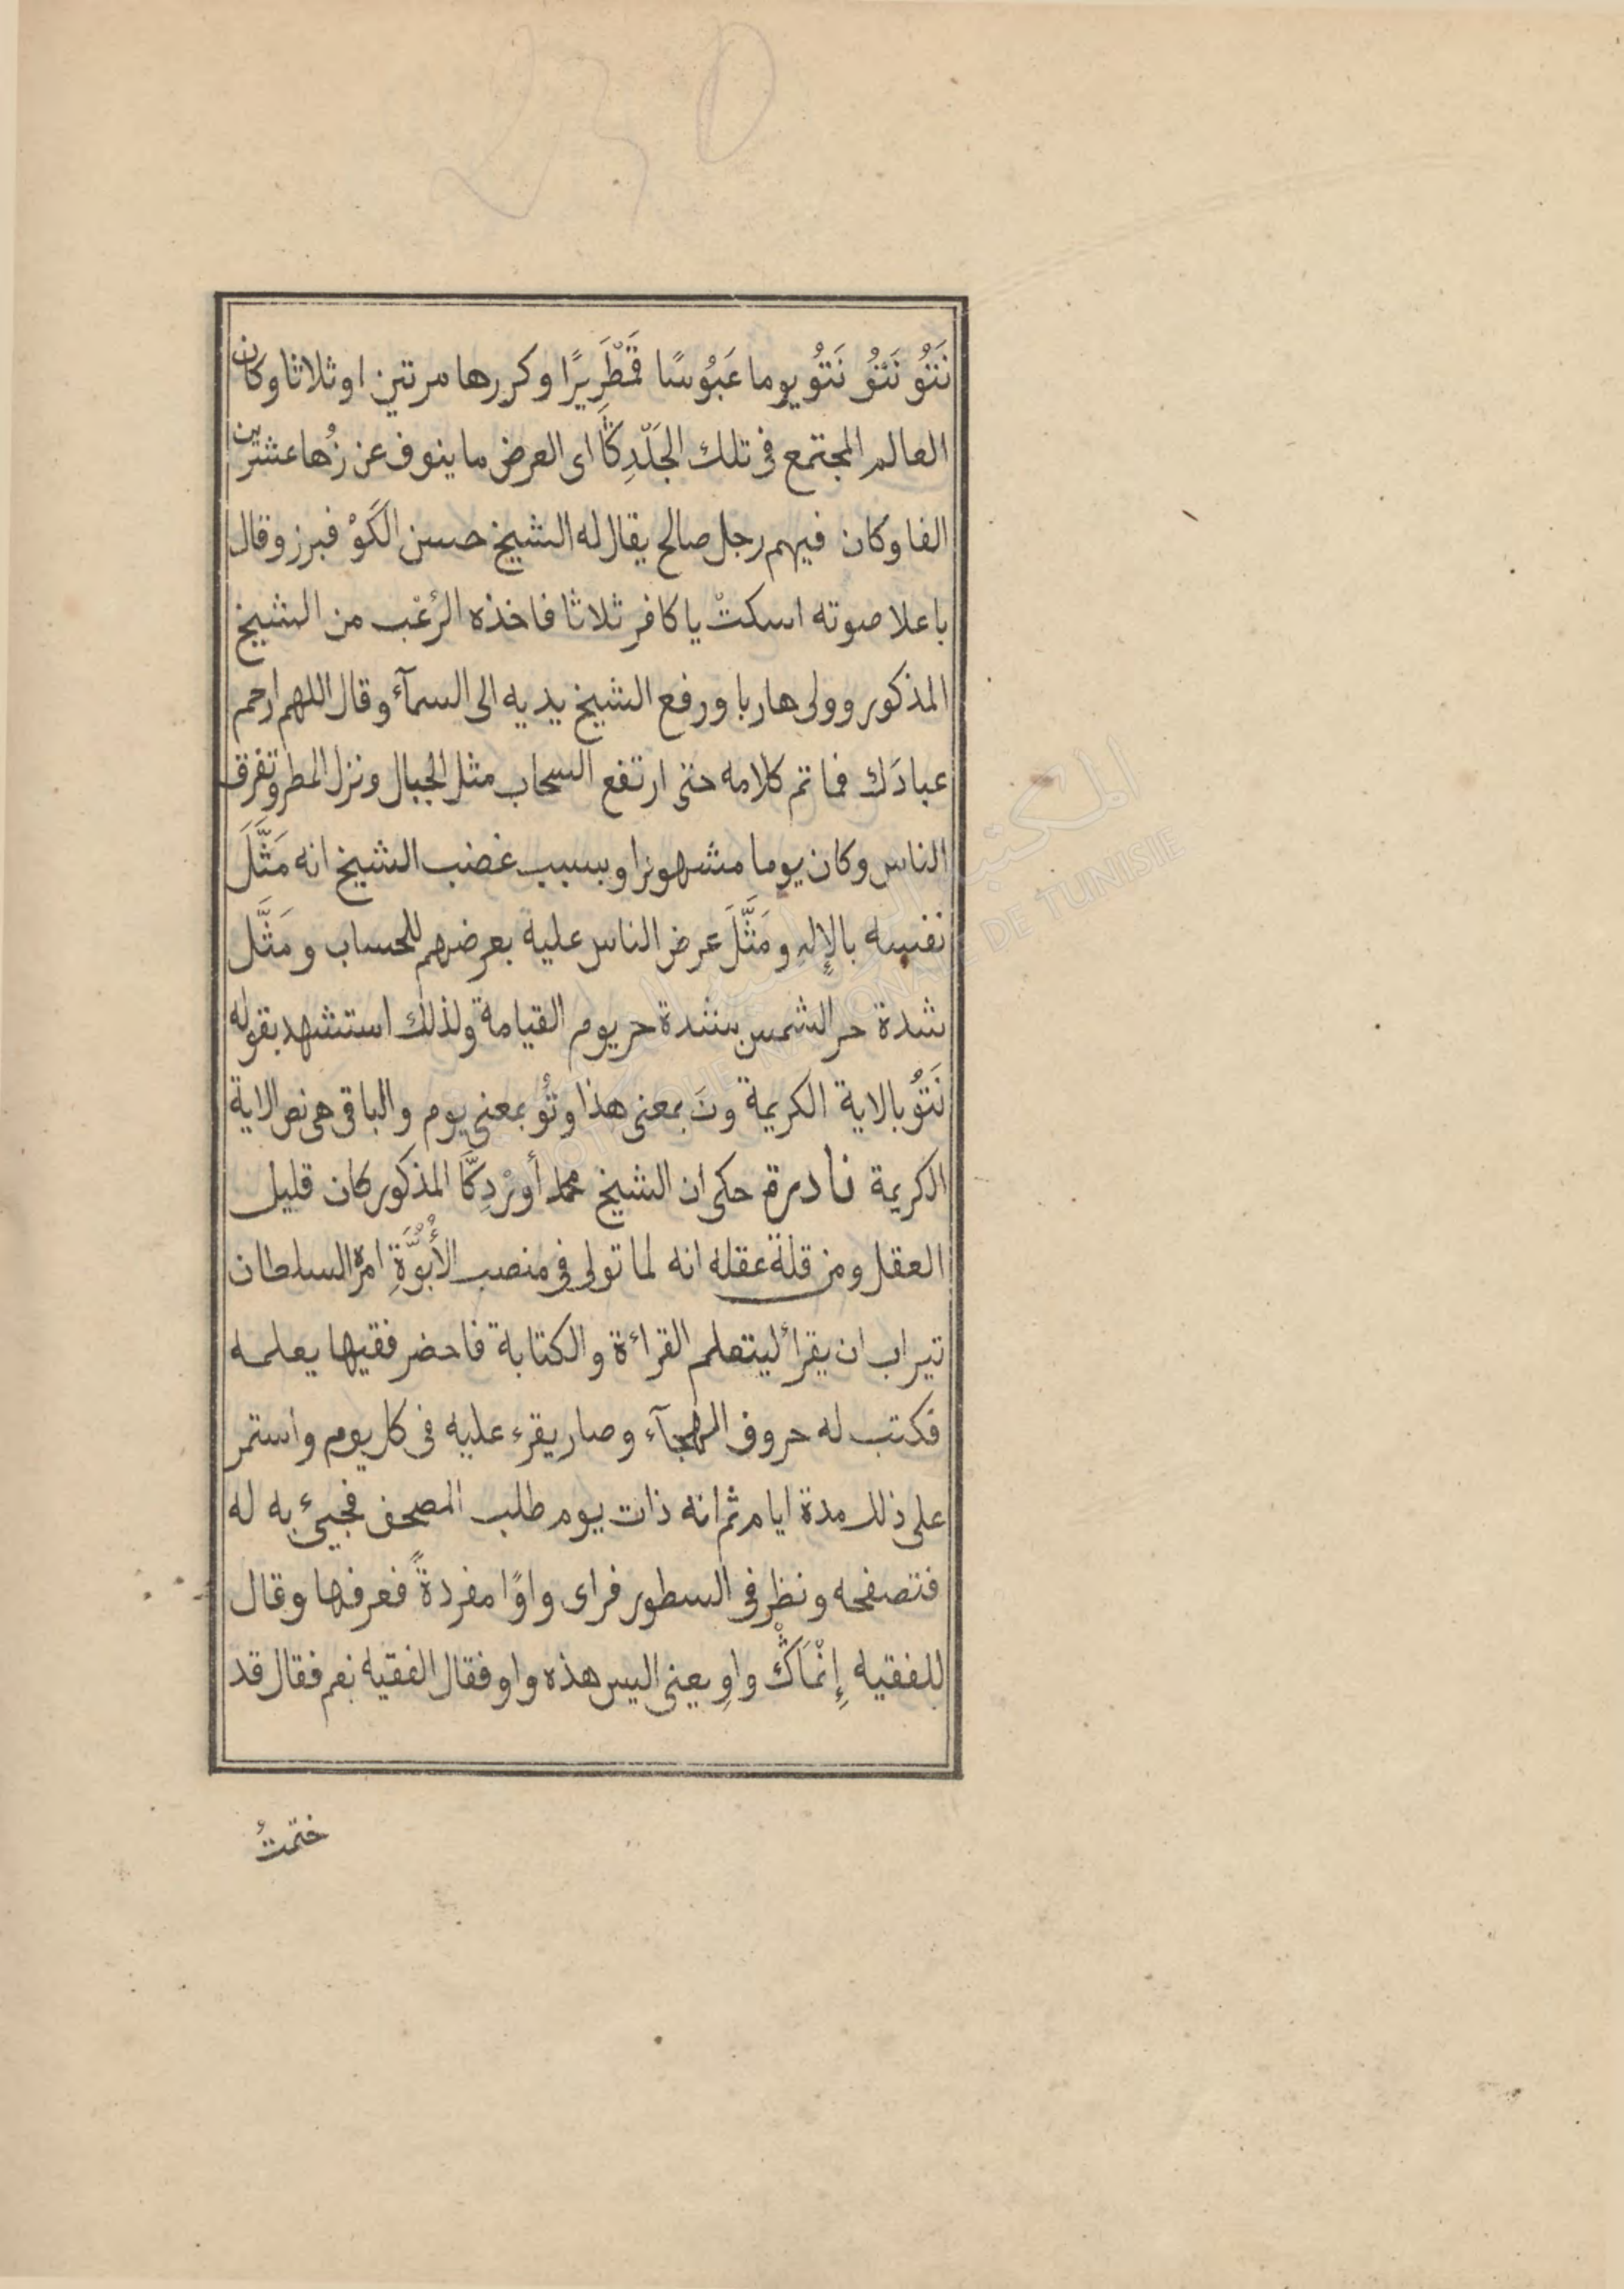 230
نَتُو نَتُو نَتُو يوما عَبُوسًا قَمْطَرِيرًا وكررها مرتين او ثلاثا وكان
العالم المجتمع فى تلك الجَلّدِكَا اى العرض ما ينوف عن زُها عشرين
الفا وكان فيهم رجل صالح يقال له الشيخ حسن الكَوْ فبرز وقال
باعلا صوته اسكتْ يا كافر ثلاثا فاخذه الرُعْب من الشيخ
المذكور وولى هاربا ورفع الشيخ يديه الى السمآء وقال اللهم ارحم
عبادَك فما تم كلامه حتى ارتفع السحاب مثل الجبال ونزل المطر وتفرق
الناس وكان يوما مشهورا وبسبب غضب الشيخ انه مَثَّلَ
نفسه بالإلهِ ومَثَّلَ عرض الناس عليه بعرضهم للحساب ومَثَّل
شدة حر الشمس بشدة حر يوم القيامة ولذلك استشهد بقوله
نَتُو بالاية الكريمة ونَ بمعنى هذا وتُو بمعنى يوم والباقى هى نص الاية
الكريمة نادرة حكى ان الشيخ محمد أورْدِكَّا المذكور كان قليل
العقل ومن قلة عقله انه لما تولى فى منصب الأُبُوَّةِ امره السلطان
تيراب ان يقرأ ليتعلم القراءة والكتابة فاحضر فقيها يعلمه
فكتب له حروف الهجآء وصار يقرء عليه فى كل يوم واستمر
على ذلك مدة ايام ثم انه ذات يوم طلب المصحف فجيئ به له
فتصفحه ونظر فى السطور فراى واوًا مفردةً فعرفها وقال
للفقيه إِنْمَاكْ واوِ يعنى اليس هذه واو فقال الفقيه نعم فقال قد
ختمتُ
المكتبة
DE TUNISIE